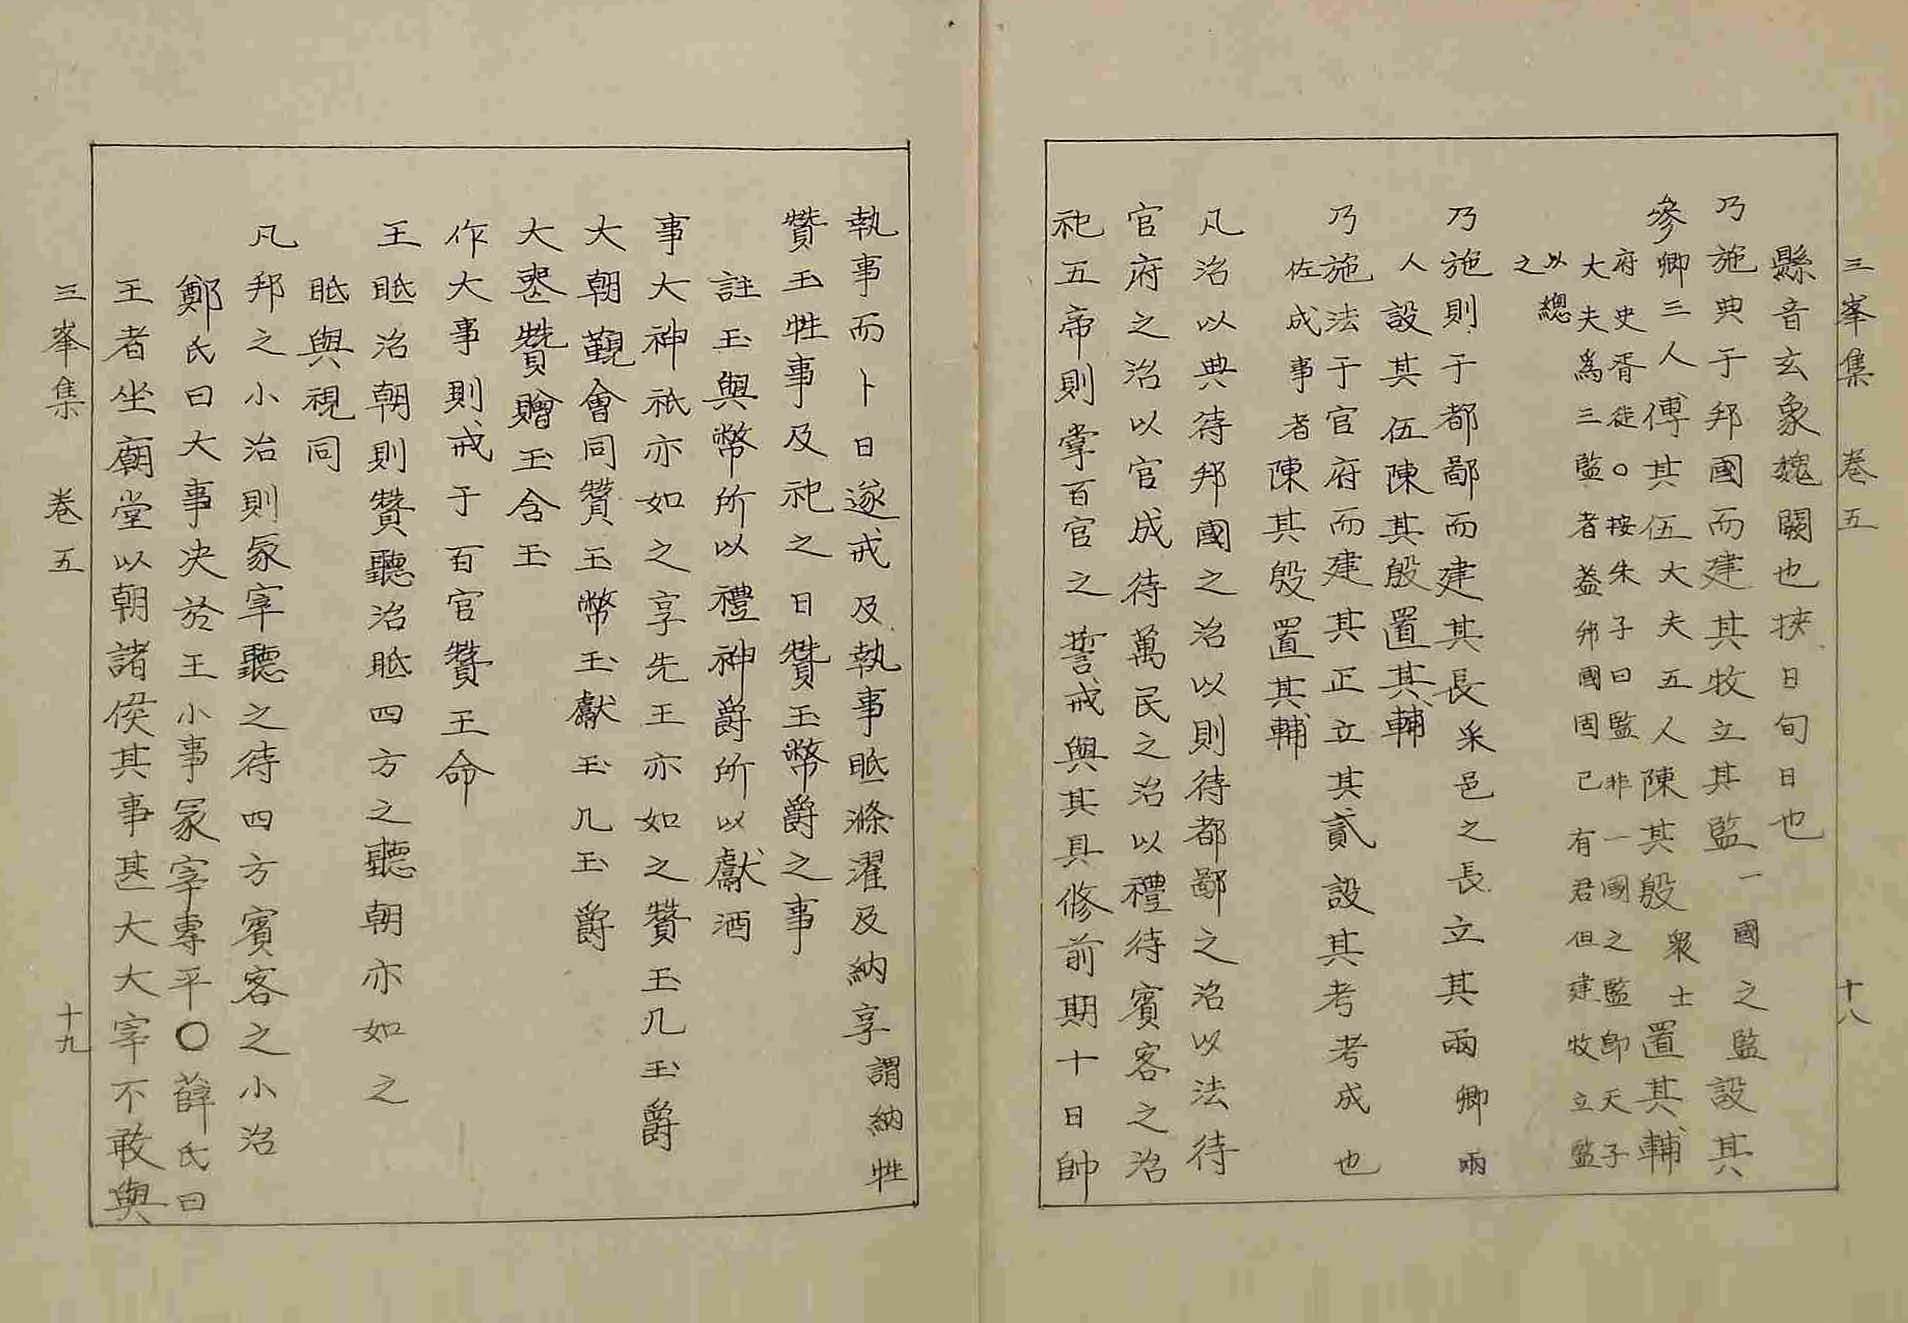 三峯集 卷五 十八
縣音玄象魏闕也挾日旬日也
乃施典于邦國而建其牧立其監一國之監設其
參卿三人傅其伍大夫五人陳其殷衆士置其輔
府史胥徒○按朱子曰監非一國之監卽天子
大夫爲三監者葢邦國固已有君但建牧立監
以總
之
乃施則于都鄙而建其長采邑之長立其兩卿兩
人設其伍陳其殷置其輔
乃施法于官府而建其正立其貳設其考考成也
佐成事者陳其殷置其輔
凡治以典待邦國之治以則待都鄙之治以法待
官府之治以官成待萬民之治以禮待賓客之治
祀五帝則掌百官之誓戒與其具修前期十日帥
執事而卜日遂戒及執事眡滌濯及納享謂納牲
贊玉牲事及祀之日贊玉幣爵之事
註玉與幣所以禮神爵所以獻酒
事大神祇亦如之享先王亦如之贊玉几玉爵
大朝覲會同贊玉幣玉獻玉几玉爵
大喪贊贈玉含玉
作大事則戒于百官贊王命
王眡治朝則贊聽治眡四方之聽朝亦如之
眡與視同
凡邦之小治則冢宰聽之待四方賓客之小治
鄭氏曰大事决於王小事冢宰專平○薛氏曰
王者坐廟堂以朝諸侯其事甚大大宰不敢與
三峯集 卷五 十九